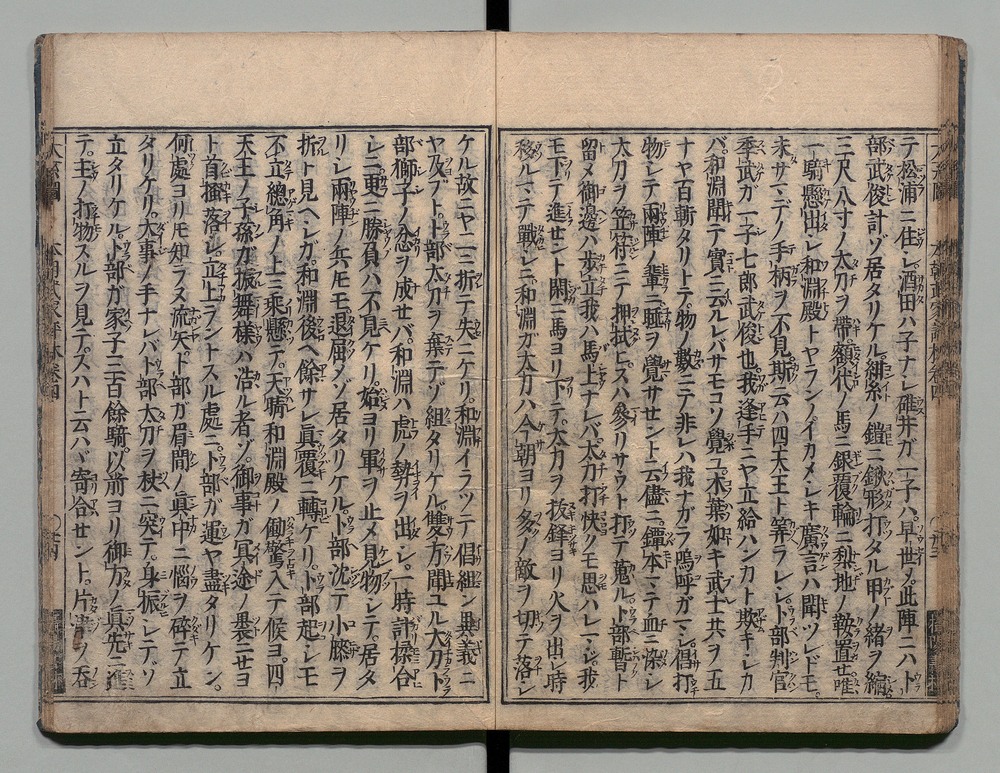 テ松浦ニ住レ酒田ハ子ナレ碓井ガ一子ハ早世メ此陣ニハト
部武俊計ゾ居タリケル緋糸ノ鎧ニ鍬形打タル甲ノ緒ヲ縮
三尺八寸ノ太刀ヲ帯額代ノ馬ニ銀覆輪ニ梨地ノ鞍置セ唯
一騎懸出レ和淵殿トヤランノイカメレキ廣言ハ聞ツレドモ
未サマデノ手柄ヲ不見斯云ハ四天王ト等ラレレト部判官
季武ガ一子七郎武俊也我逢手ニヤ立給ハンカト欺キレカ
バ和淵聞テ實ニ云ルレバサモコソ覺ユ木葉如キ武士共ヲ五
ナヤ百斬タリトテ物ノ數ニテ非レハ我ナガラ嗚呼ガマレ倡打
物レテ兩陣ノ輩ニ睡ヲ覺サセント云儘ニ鐔本マテ血ニ染レ
大刀ヲ笠符ニテ押拭ヒスハ參リサウト打テ蒐ルト部暫ト
留メ御邊ハ歩立我ハ馬上ナレバ太刀打快クモ思ハレマレ我
モ下テ進セント閑ニ馬ヨリ下テ太刀ヲ抜鋒ヨリ火ヲ出レ時
移ルマテ戰レニ和淵ガ太刀ハ今朝ヨリ多ノ敵ヲ切テ落レ
ケル故ニヤ二三折テ失ニケリ和淵イラツテ倡組ン異義ニ
ヤ及ブトト部太刀ヲ棄テゾ組タリケル雙方聞ユル大刀ト
部獅子ノ忿ヲ成セバ和淵ハ虎ノ勢ヲ出レ一時計揉合
レニ更ニ勝負ハ不見ケリ始ヨリ軍ヲ止メ見物レテ居タ
リレ兩陣ノ兵𪜈モ退屈メゾ居タリケルト部沈テ小膝ヲ
折ト見ヘレガ和淵後ヘ餘サレ眞覆ニ轉ケリト部起レモ
不立總角ノ上ニ乘懸テ天晴和淵殿ノ働驚入テ候ヨ四
天王ノ子孫ガ振舞様ハ浩ル者ゾ御事ガ冥途ノ褁ニセヨ
ト首搔落レ立上ラントスル處ニト部ガ運ヤ盡タリケン
何處ヨリモ知ラヌ流矢ト部ガ眉間ノ眞中ニ惱ヲ碎テ立
タリケリ大事ノ手ナレバト部太刀ヲ杖ニ突テ身振レテゾ
立タリケルト部ガ家子三百餘騎以前ヨリ御方ノ眞先ニ進
テ主ノ打物スルヲ見テスハト云ハヾ寄合セント片ノ呑